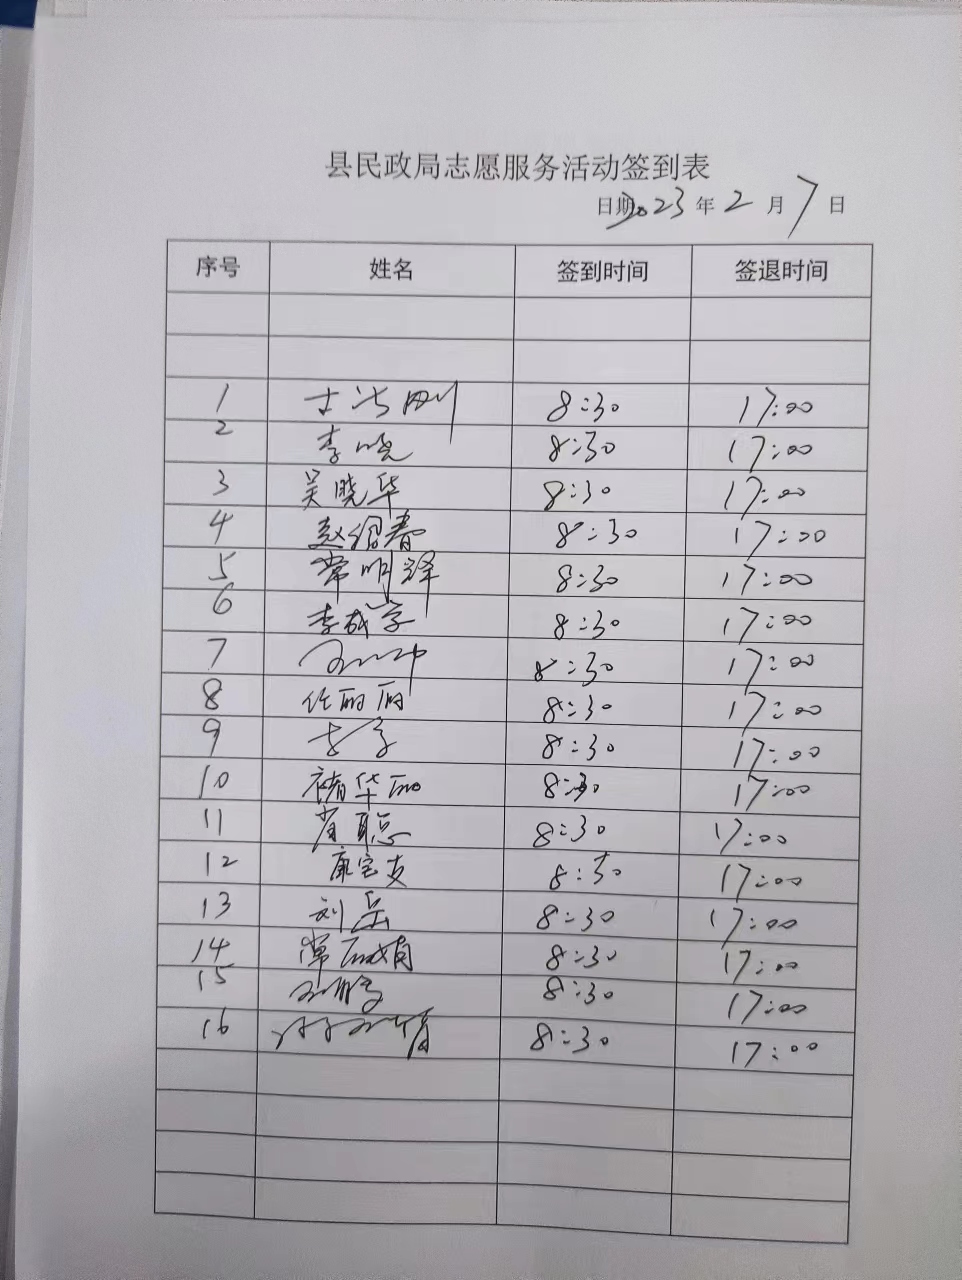 县民政局志愿服务活动签到表
日期2023年2月7日
序号 姓名 签到时间 签退时间
1 8:30 17:00
2 李晓 8:30 17:00
3 吴晓华 8:30 17:00
4 赵绍春 8:30 17:00
5 常明译 8:30 17:00
6 李成学 8:30 17:00
7 8:30 17:00
8 任丽丽 8:30 17:00
9 8:30 17:00
10 褚华丽 8:30 17:00
11 肖聪 8:30 17:00
12 康宝支 8:30 17:00
13 刘岳 8:30 17:00
14 8:30 17:00
15 8:30 17:00
16 8:30 17:00